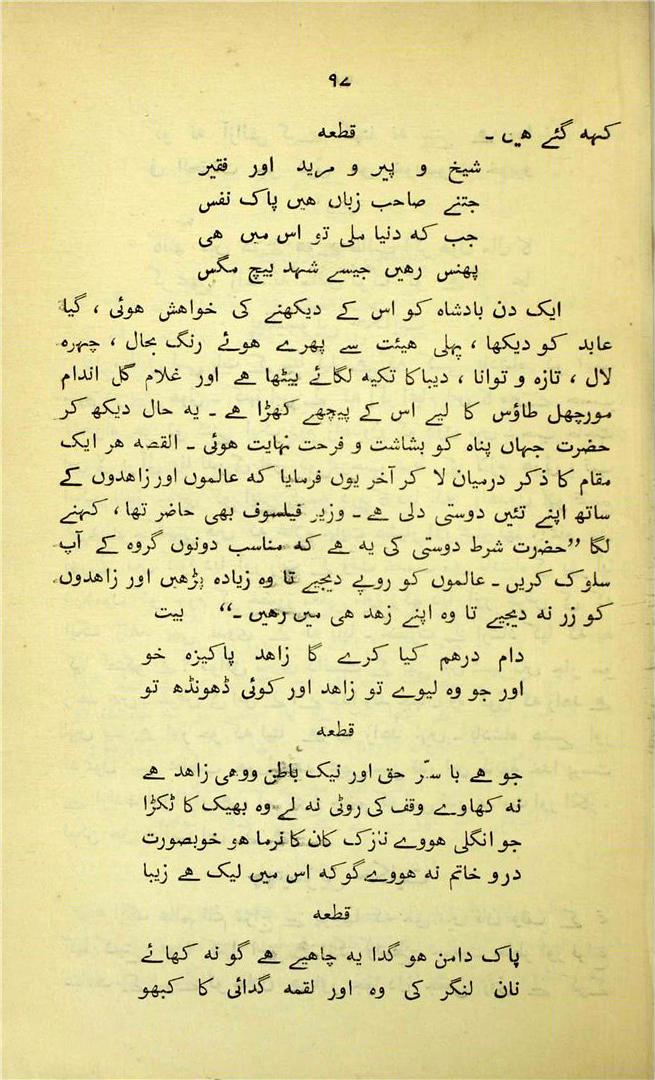 ۹۷
کہہ گئے ھیں ۔ قطعہ
شیخ و پیر و مرید اور فقیر
جتنے صاحب زباں ھیں پاک نفس
جب کہ دنیا ملی تو اس میں ھی
پھنس رھیں جیسے شہد بیچ مگس
ایک دن بادشاہ کو اس کے دیکھنے کی خواھش ھوئی ، گیا
عابد کو دیکھا ، پہلی ھیئت سے پھرے ھوئے رنگ بحال ، چہرہ
لال ، تازہ و توانا ، دیبا کا تکیہ لگائے بیٹھا ھے اور غلام گل اندام
مورچھل طاؤس کا لیے اس کے پیچھے کھڑا ھے ۔ یہ حال دیکھ کر
حضرت جہاں پناہ کو بشاشت و فرحت نہایت ھوئی ۔ القصہ ھر ایک
مقام کا ذکر درمیان لا کر آخر یوں فرمایا کہ عالموں اور زاھدوں کے
ساتھ اپنے تئیں دوستی دلی ھے ۔ وزیر فیلسوف بھی حاضر تھا ، کہنے
لگا ”حضرت شرط دوستی کی یہ ھے کہ مناسب دونوں گروہ کے آپ
سلوک کریں ۔ عالموں کو روپے دیجیے تا وہ زیادہ پڑھیں اور زاھدوں
کو زر نہ دیجیے تا وہ اپنے زھد ھی میں رھیں ۔“ بیت
دام درھم کیا کرے گا زاھد پاکیزہ خو
اور جو وہ لیوے تو زاھد اور کوئی ڈھونڈھ تو
قطعہ
جو ھے با سرّ حق اور نیک باطن ووھی زاھد ھے
نہ کھاوے وقف کی روٹی نہ لے وہ بھیک کا ٹکڑا
جو انگلی ھووے نازک کان کا نرما ھو خوبصورت
در و خاتم نہ ھووے گو کہ اس میں لیک ھے زیبا
قطعہ
پاک دامن ھو گدا یہ چاھیے ھے گو نہ کھائے
نان لنگر کی وہ اور لقمہ گدائی کا کبھو